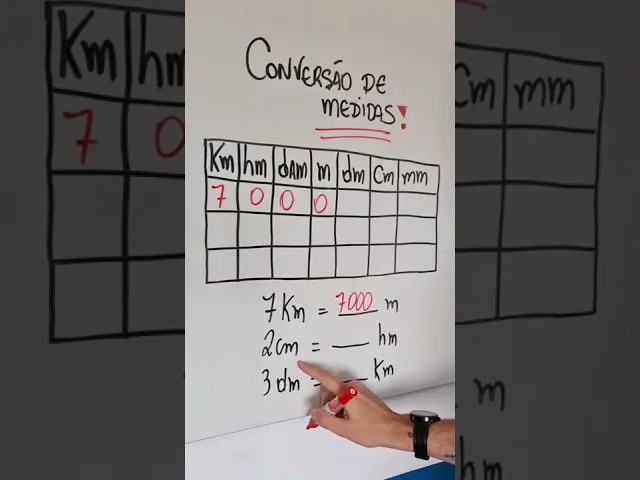 CONVERSÃO DE
MEDIDAS!
Km hm dAm m dm Cm mm
7 0 0 0
7Km = 7000 m
2cm = ___ hm
3dm = ___ Km
Km hm
7 0
Cm mm
hm